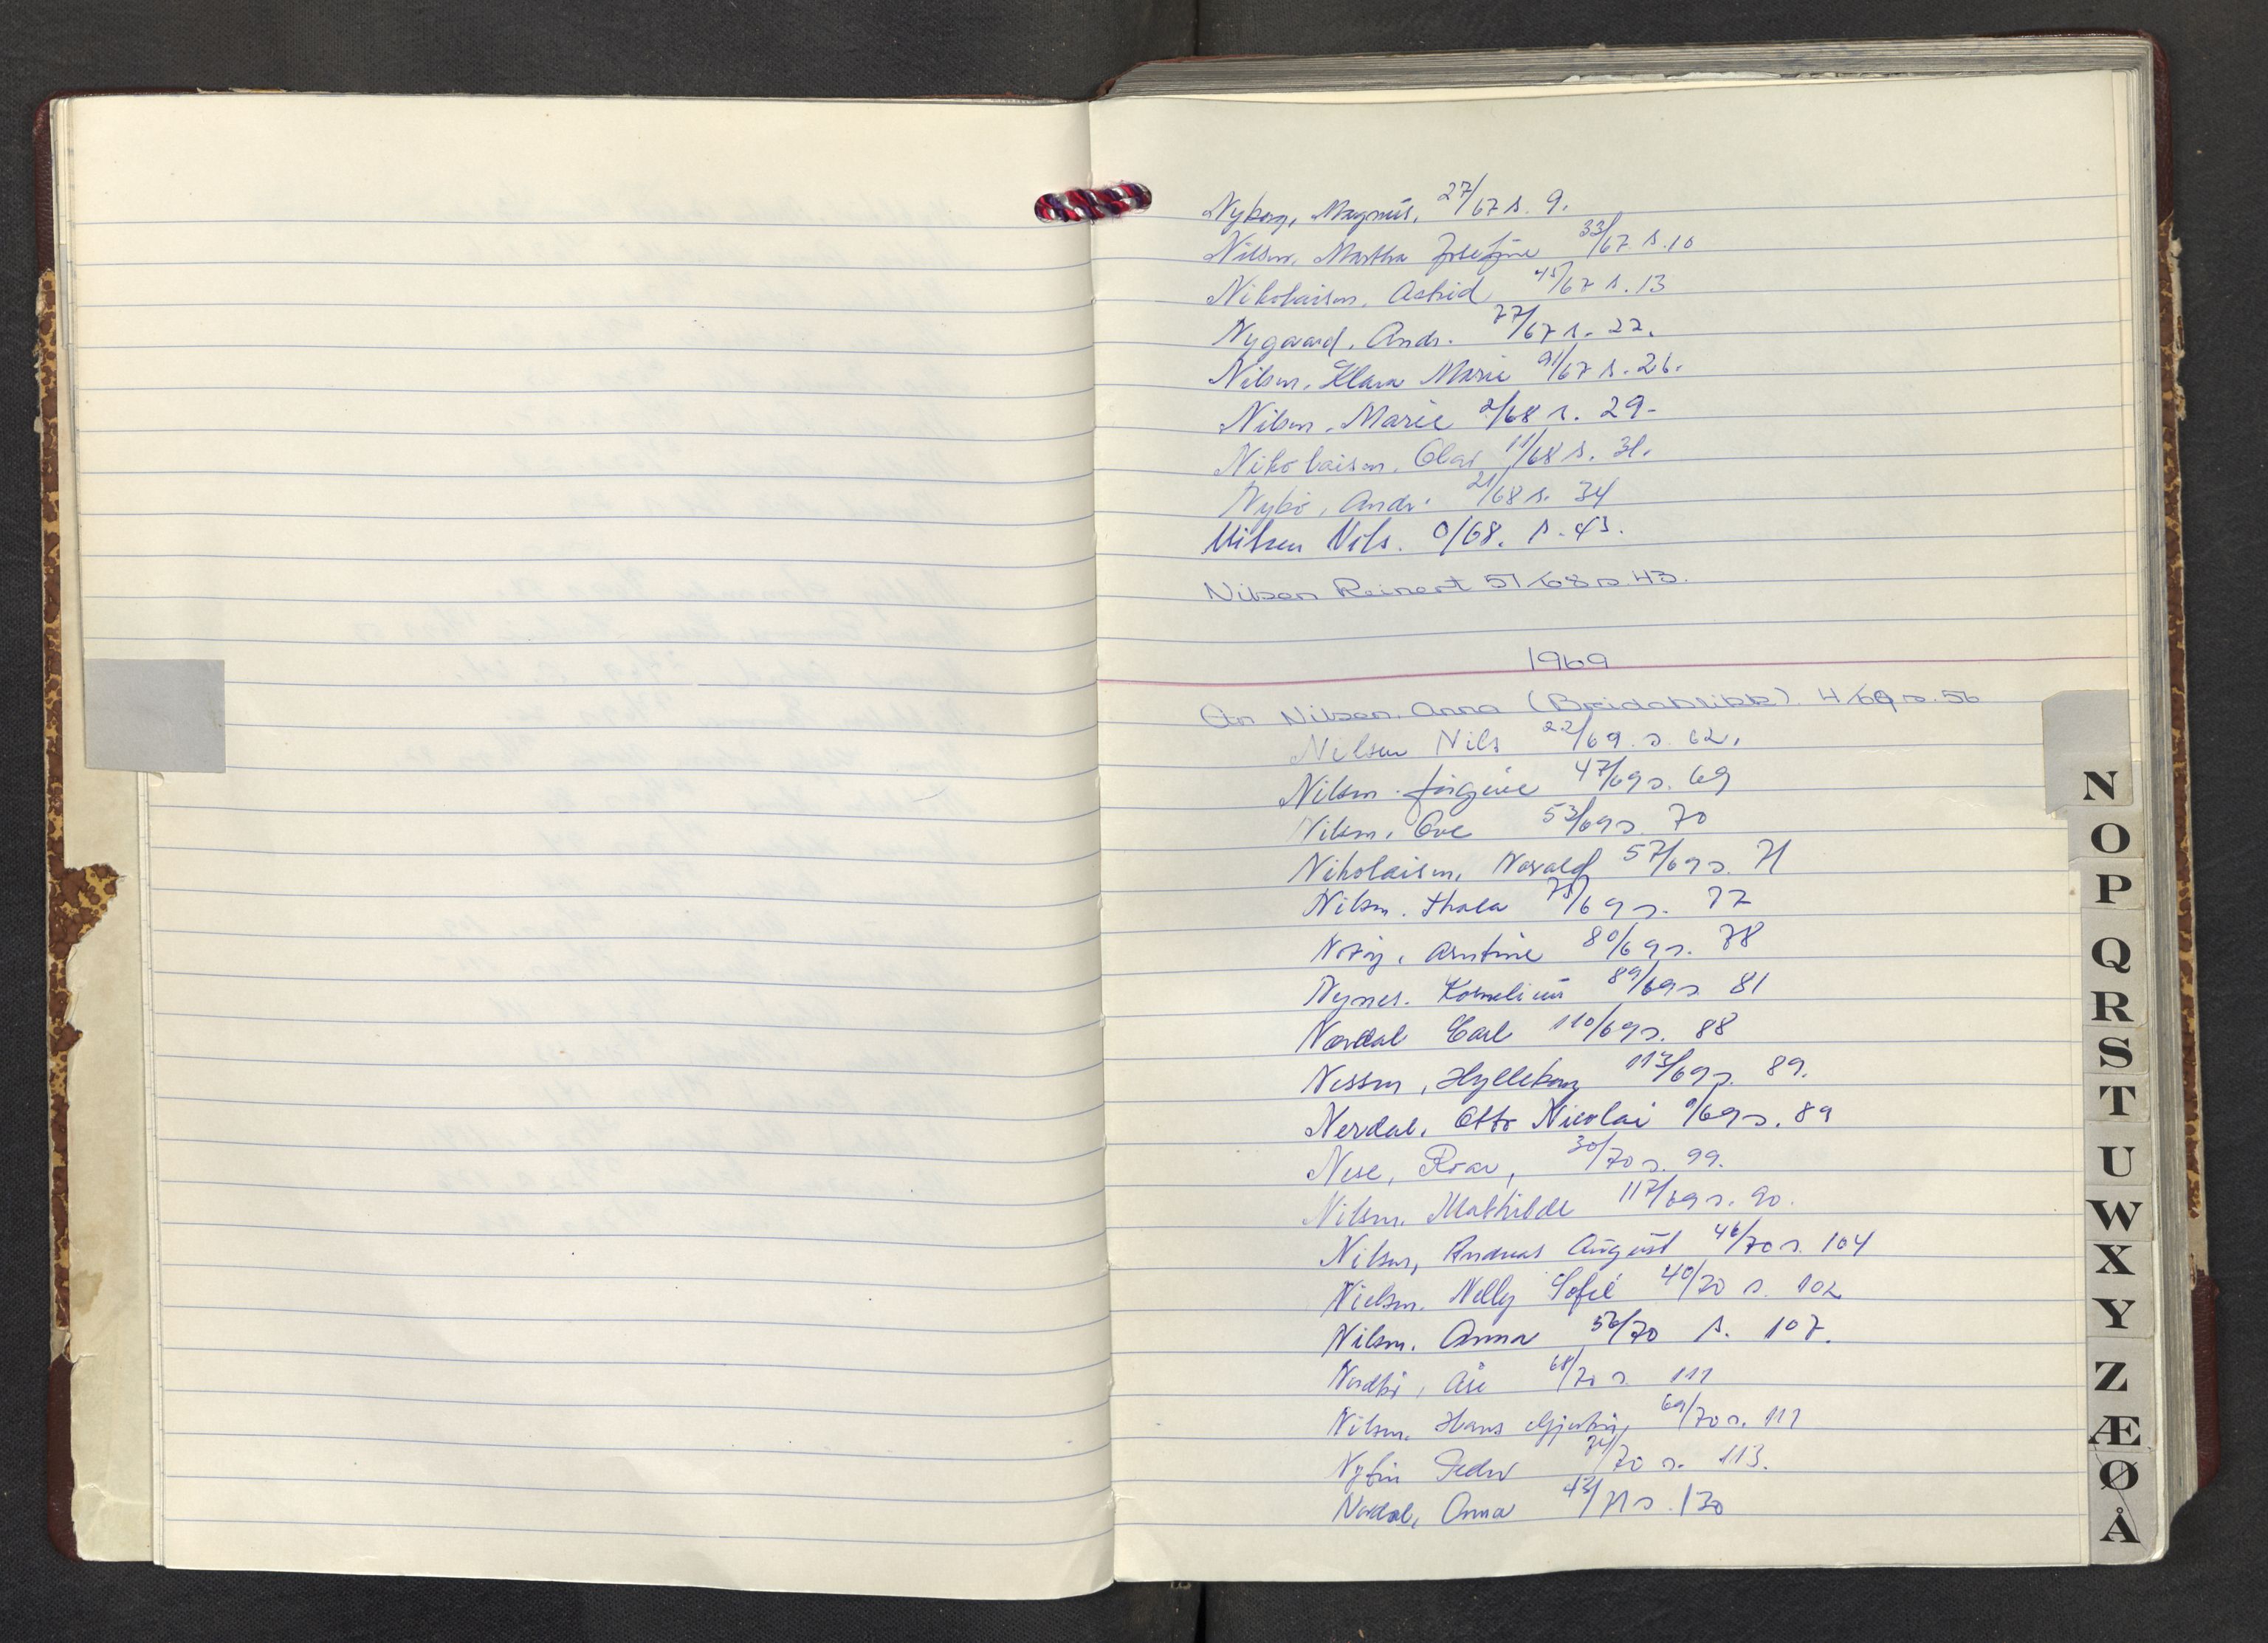 Nyborg, Magnus, 27/67 s. 9.
Nilsen, Martha Josefine 33/67 s. 10
Nikolaisen, Astrid 45/67 s. 13
Nygaard, Andr. 77/67 s. 22.
Nilsen, Klara Marie 91/67 s. 26.
Nilsen, Marie 2/68 s. 29-
Nikolaisen, Olav 11/68 s. 31.
Nybø, Andr. 21/68 s. 34
Nilsen Nils. 0/68. s. 43.
Nilsen Reinert 51/68 s. 43.
1969
Nilsen, Anna (Breidablikk). 4/69 s. 56
Nilsen Nils 22/69 s. 62.
Nilsen Jørgine 47/69 s. 69
Nilsen, Ove 53/69 s. 70
Nikolaisen, Norvald 57/69 s. 71
Nilsen. Thala 75/69 s. 77
Arntine 80/69 s. 78
Nynes. Kornelius 89/69 s. 81
Nordal Carl 110/69 s. 88
Nessen, Hylleborg 113/69 s. 89.
Nerdal, Otto Nicolai 0/69 s. 89
Nese, Roar, 30/70 s. 99.
Nilsen, Mathilde 117/69 s. 90.
Nilsen, Andreas August 46/70 s. 104
Nielsen. Nelly Sofie 40/70 s. 102
Nilsen. Anna 56/70 s. 107.
Nordbø, Åse 68/70 s. 111
Nilsen. Hans 69/70 s. 111
/70 s. 113.
Nordal, Anna 43/71 s. 130
N
O
P
Q
R
S
T
U
W
X
Y
Z
Æ
Ø
Å